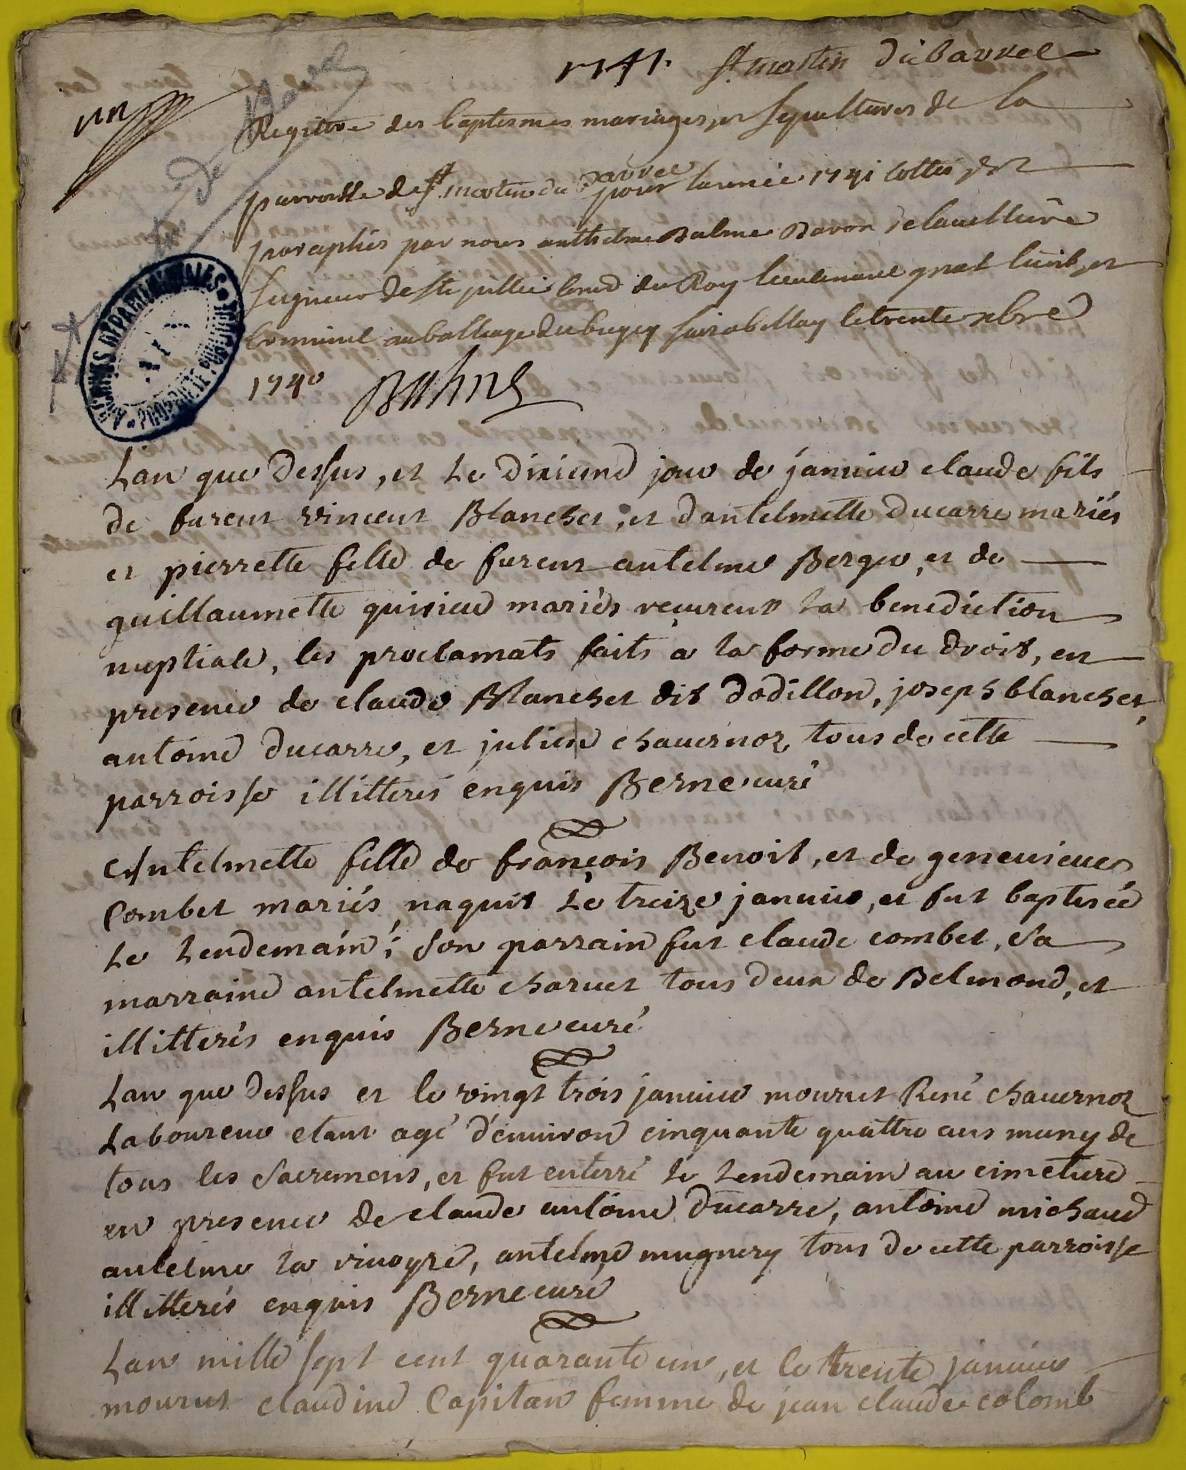 1741. St martin du bavrel
un
Registre des baptesmes mariages et sepultures de la
parroisse de St martin du bavrel pour lannée 1741 cottés et
paraphés par nous anthelme Balme Baron de
seigneur de Ste Jullie du Roy lieutenant gnal civil et
criminel au balliage du bugey sair a bellay le trente xbre
1740 Balme
ARCHIVES DEPARTEMENTALES
Lan que dessus, et Le dixieme jour de janvier claude fils
de furent vincent Blanchet, et dantelmette ducarre mariés
et pierrette fille de furent antelme Berger, et de
guillaumette mariés reçurent la benediction
nuptiale, les proclamats faits a la forme du droit, en
presence de claude Blanchet dit dodillon, joseph blanchet,
antoine ducarre, et julien chavernoz tous de cette
parroisse illitterés enquis Berne curé
Antelmette fille de françois Benoit, et de genevieve
Combet mariés naquit Le treize janvier, et fut baptisée
Le Lendemain; Son parrain fut claude combet, Sa
marraine antelmette charvet tous deux de Belmond, et
illitterés enquis Berne curé
Lan que dessus et le vingt trois janvier mourut René chavernoz
Laboureur etant agé d'environ cinquante quattre ans muny de
tous les Sacremens, et fut enterré le Lendemain au cimetiere
en presence de claude antoine ducarre, antoine michaud
antelme la vivoyre, antelme mugnery tous de cette parroisse
illitterés enquis Berne curé
Lan mille sept cent quarante un, et le trente janvier
mourut claudine Capitan femme de jean claude colomb